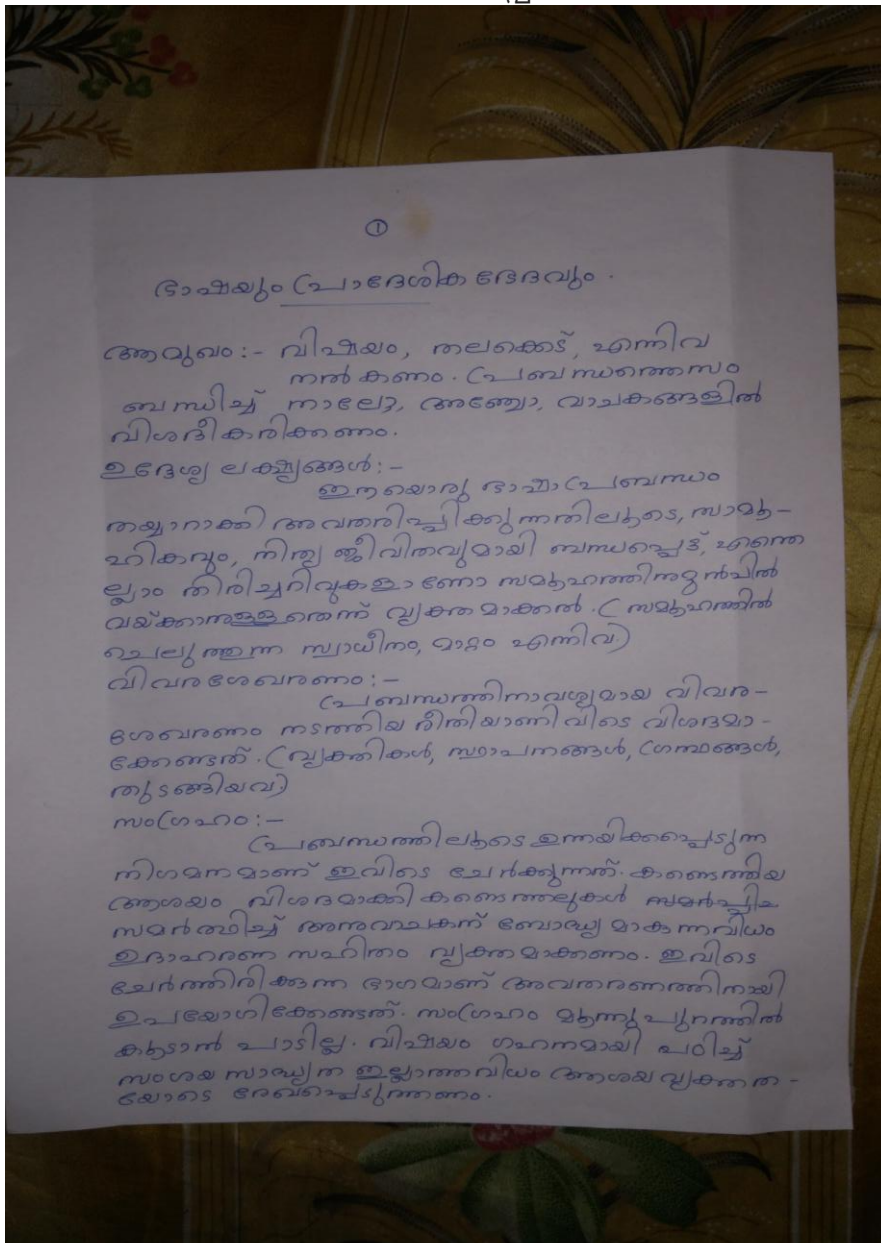 ①
ഭാഷയും പ്രാദേശിക ഭേദവും.
ആമുഖം:- വിഷയം, തലക്കെട്ട്, എന്നിവ
നൽകണം. പ്രബന്ധത്തെസം
ബന്ധിച്ച് നാലോ, അഞ്ചോ, വാചകങ്ങളിൽ
വിശദീകരിക്കണം.
ഉദ്ദേശ്യ ലക്ഷ്യങ്ങൾ:-
ഈയൊരു ഭാഷാപ്രബന്ധം
തയ്യാറാക്കി അവതരിപ്പിക്കുന്നതിലൂടെ, സാമൂ-
ഹികവും, നിത്യ ജീവിതവുമായി ബന്ധപ്പെട്ട്, എന്തെ
ല്ലാം തിരിച്ചറിവുകളാണോ സമൂഹത്തിനുമുൻപിൽ
വയ്ക്കാനുള്ളതെന്ന് വ്യക്തമാക്കൽ. (സമൂഹത്തിൽ
ചെലുത്തുന്ന സ്വാധീനം, മാറ്റം എന്നിവ.)
വിവരശേഖരണം:-
പ്രബന്ധത്തിനാവശ്യമായ വിവര-
ശേഖരണം നടത്തിയ രീതിയാണിവിടെ വിശദമാ-
ക്കേണ്ടത്. (വ്യക്തികൾ, സ്ഥാപനങ്ങൾ, ഗ്രന്ഥങ്ങൾ,
തുടങ്ങിയവ)
സംഗ്രഹം:-
പ്രബന്ധത്തിലൂടെ ഉന്നയിക്കപ്പെടുന്ന
നിഗമനമാണ് ഇവിടെ ചേർക്കുന്നത്. കണ്ടെത്തിയ
ആശയം വിശദമാക്കി കണ്ടെത്തലുകൾ
സമർത്ഥിച്ച് അനുവാചകന് ബോദ്ധ്യമാകുന്നവിധം
ഉദാഹരണ സഹിതം വ്യക്തമാക്കണം. ഇവിടെ
ചേർത്തിരിക്കുന്ന ഭാഗമാണ് അവതരണത്തിനായി
ഉപയോഗിക്കേണ്ടത്. സംഗ്രഹം മൂന്നു പുറത്തിൽ
കൂടാൻ പാടില്ല. വിഷയം ഗഹനമായി പഠിച്ച്
സംശയ സാദ്ധ്യത ഇല്ലാത്തവിധം ആശയ വ്യക്തത-
യോടെ രേഖപ്പെടുത്തണം.